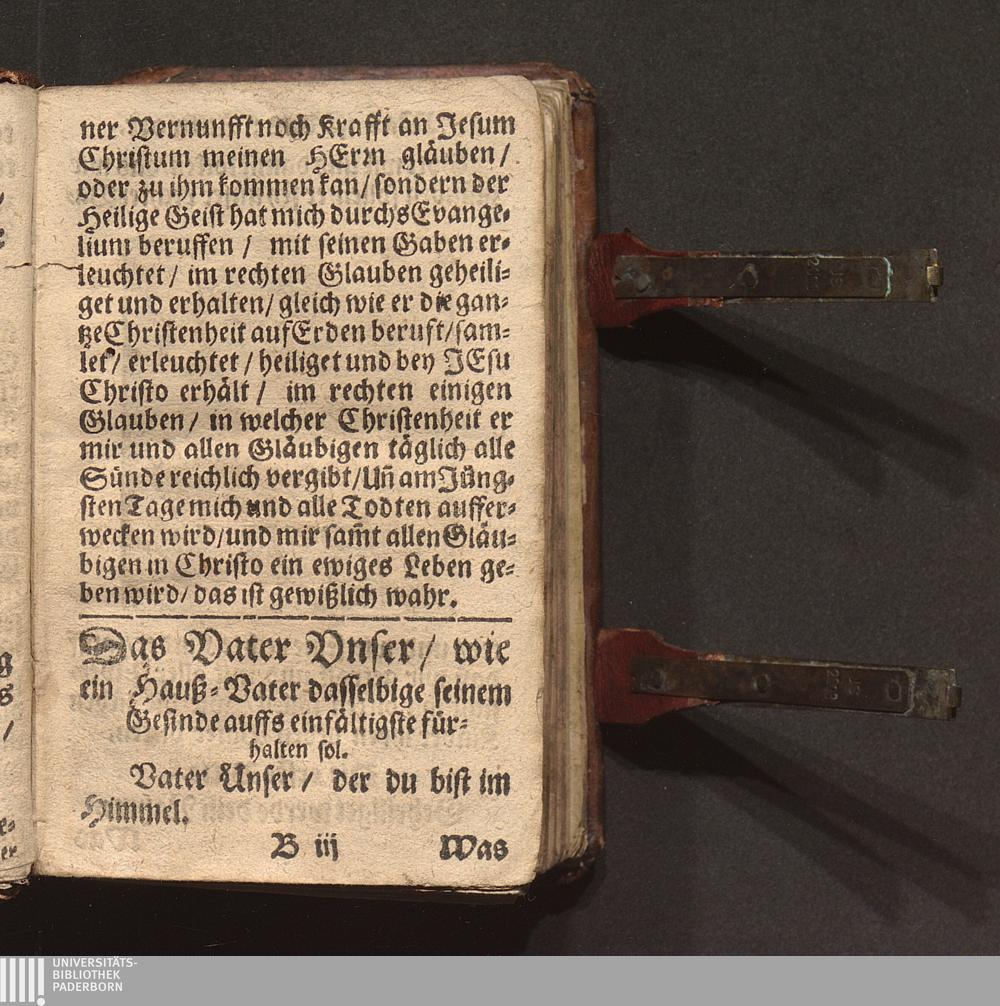 ner Vernunfft noch Krafft an Jesum
Christum meinen HErrn gläuben /
oder zu ihm kommen kan / sondern der
Heilige Geist hat mich durchs Evange-
lium beruffen / mit seinen Gaben er-
leuchtet / im rechten Glauben geheili-
get und erhalten / gleich wie er die gan-
tze Christenheit auf Erden beruft / sam-
let / erleuchtet / heiliget und bey JEsu
Christo erhält / im rechten einigen
Glauben / in welcher Christenheit er
mir und allen Gläubigen täglich alle
Sünde reichlich vergibt / Uñ am Jüng-
sten Tage mich und alle Todten auffer-
wecken wird / und mir sam̃t allen Gläu-
bigen in Christo ein ewiges Leben ge-
ben wird / das ist gewißlich wahr.
Das Vater Vnser / wie
ein Hauß-Vater dasselbige seinem
Gesinde auffs einfältigste für-
halten sol.
Vater Unser / der du bist im
Himmel.
B iij Was
UNIVERSITÄTS-
BIBLIOTHEK
PADERBORN